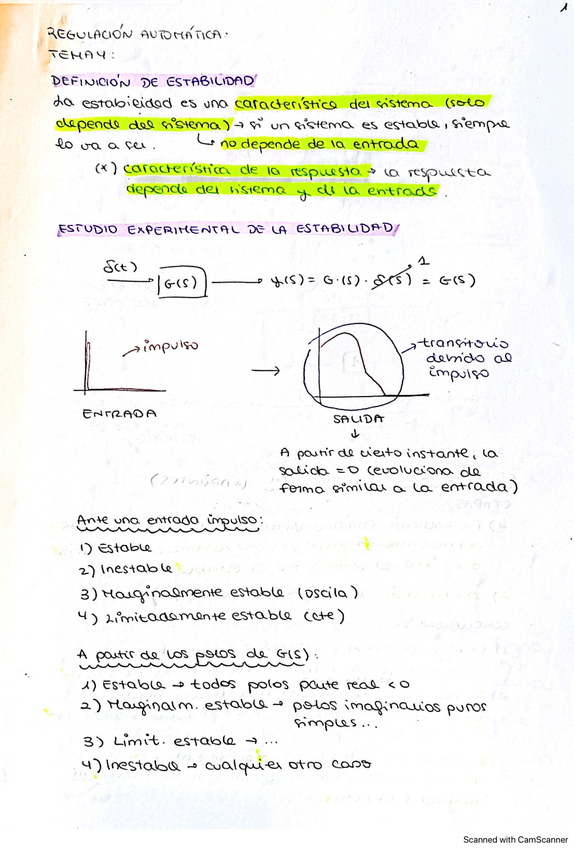 1
REGULACIÓN AUTOMÁTICA.
TEMA 4:
DEFINICIÓN DE ESTABILIDAD
La estabilidad es una característica del sistema (solo
depende del sistema) → si un sistema es estable, siempre
lo va a ser. ↳ no depende de la entrada
(*) característica de la respuesta → la respuesta
depende del sistema y de la entrada.
ESTUDIO EXPERIMENTAL DE LA ESTABILIDAD
δ(t) → G(s) → y(s) = G(s) · δ(s) 1 = G(s)
→ impulso
→
→ transitorio
debido al
impulso
ENTRADA
SALIDA
↓
A partir de cierto instante, la
salida = 0 (evoluciona de
forma similar a la entrada)
Ante una entrada impulso:
1) Estable
2) Inestable
3) Marginalmente estable (oscila)
4) Limitadamente estable (cte)
A partir de los polos de G(s):
1) Estable → todos polos parte real < 0
2) Marginalm. estable → polos imaginarios puros
simples...
3) Limit. estable → ...
4) Inestable → cualquier otro caso
Scanned with CamScanner